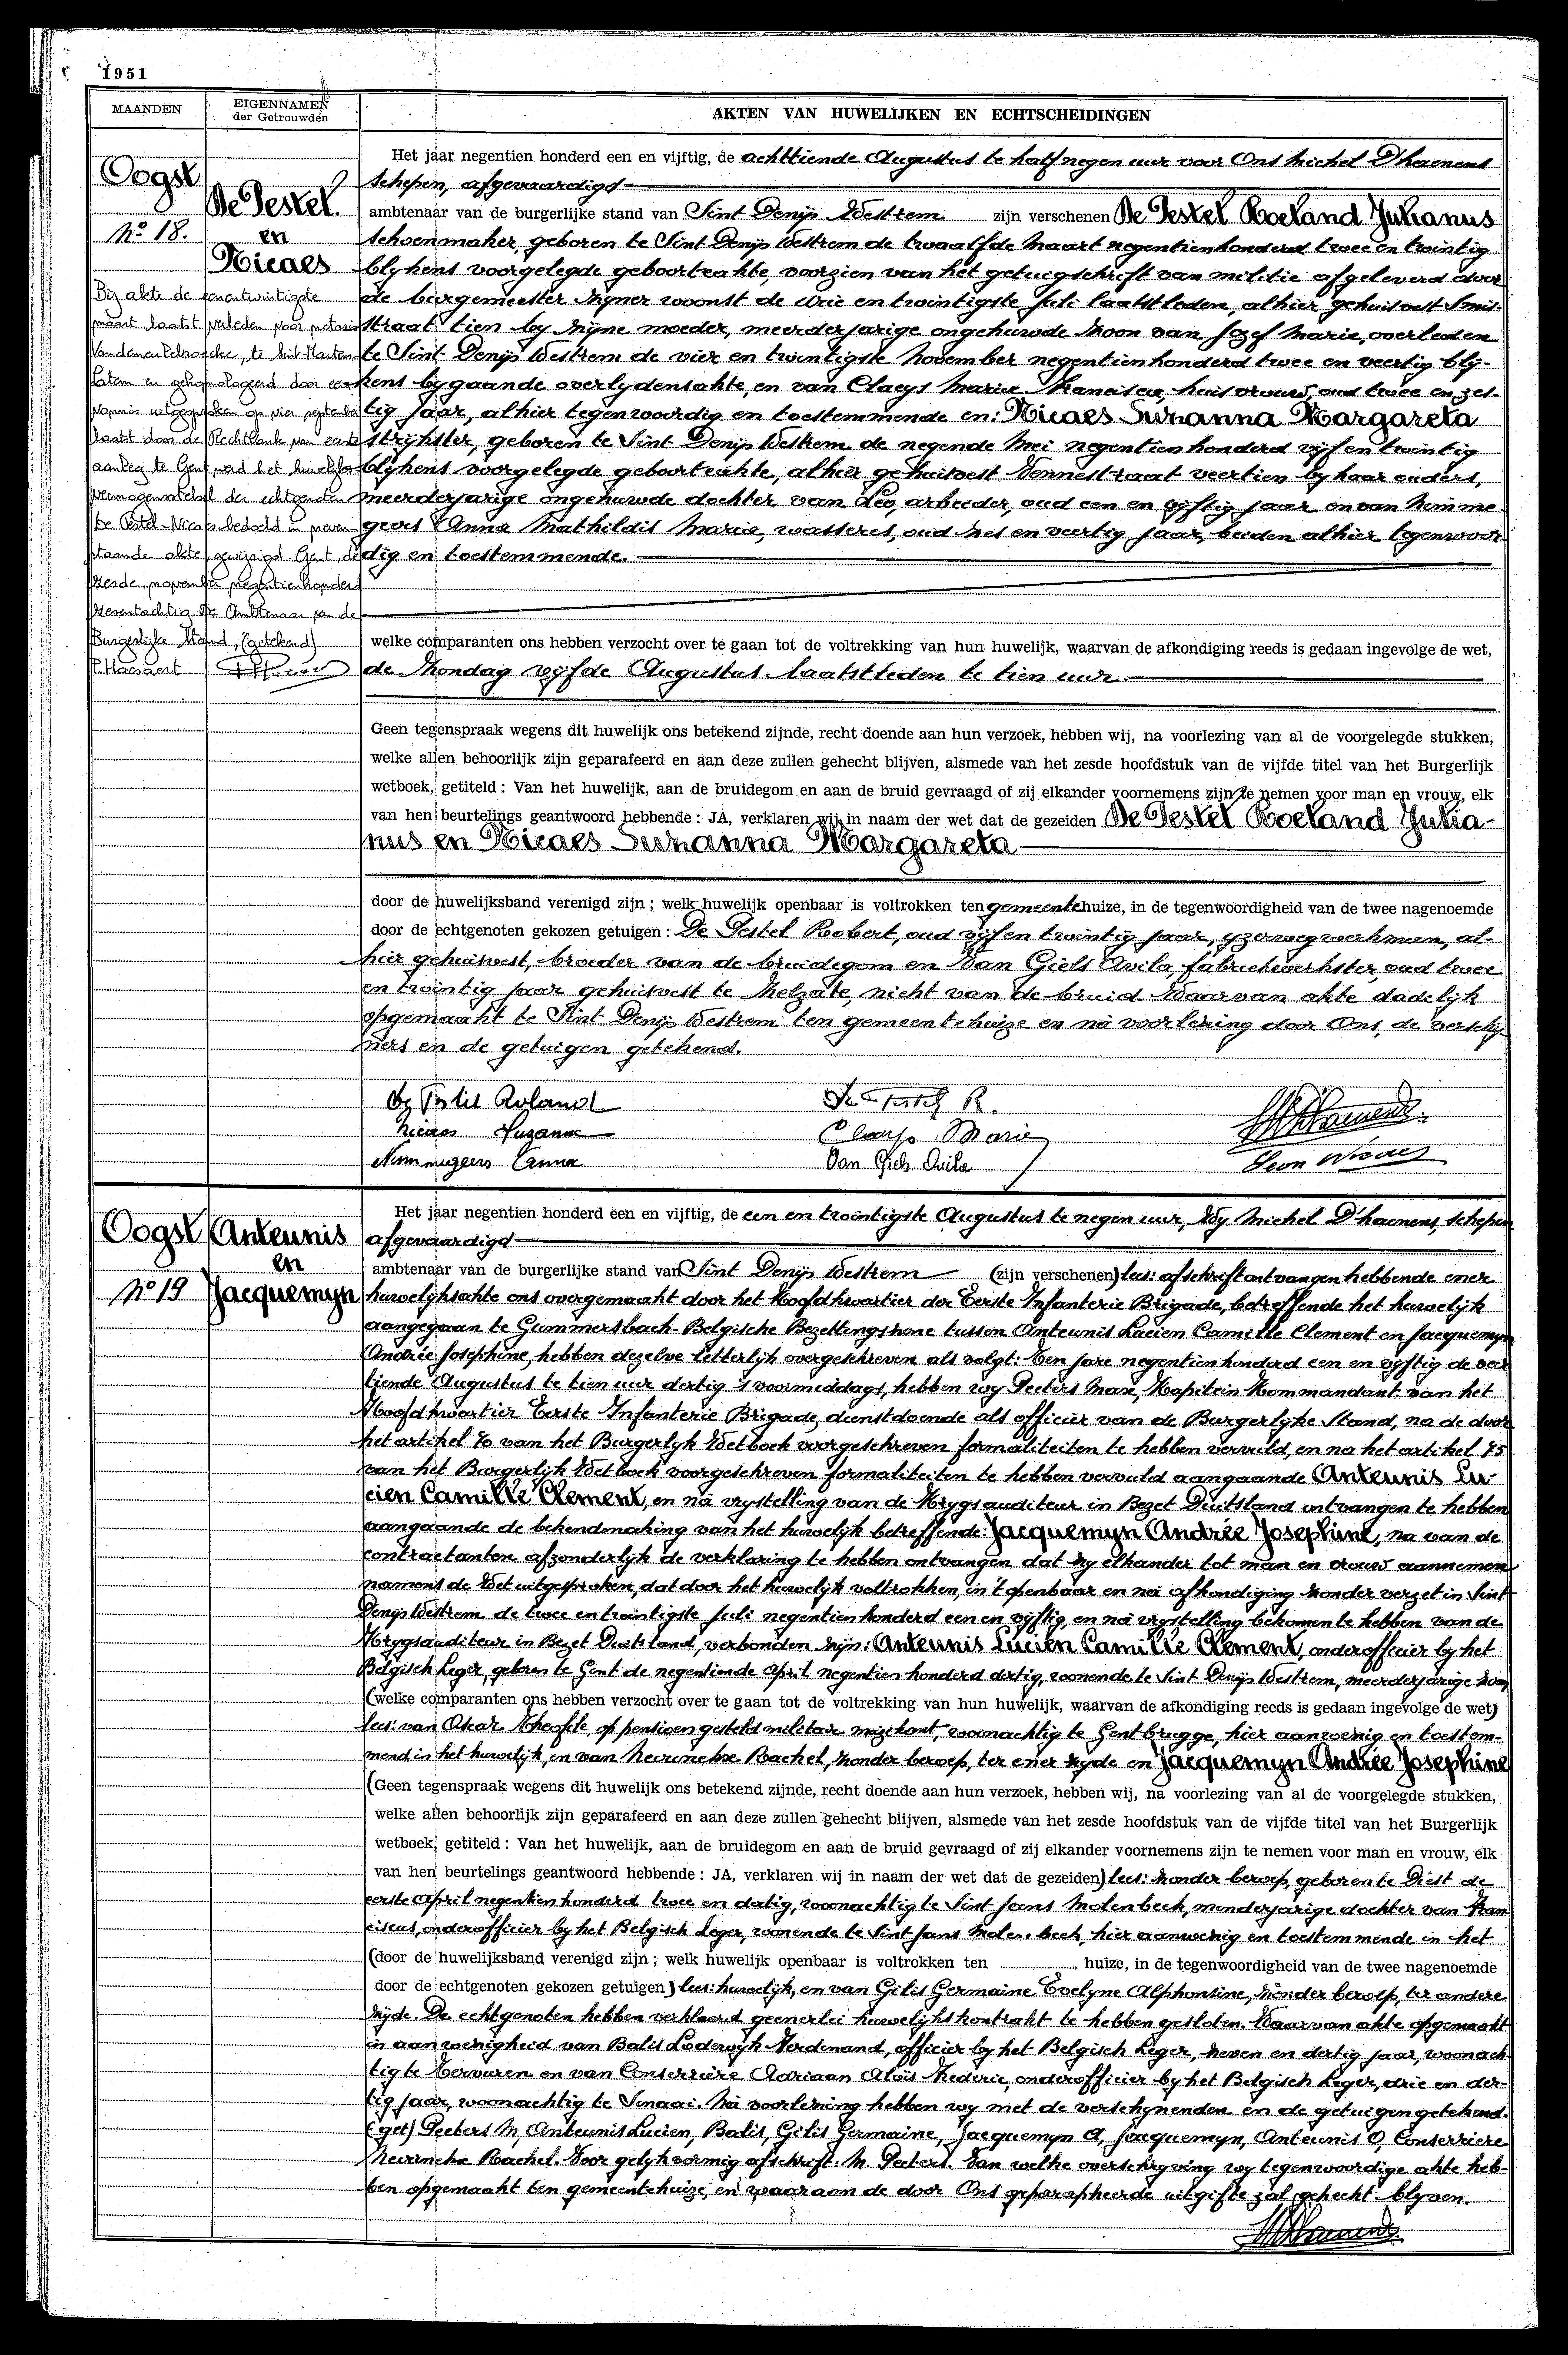 1951
MAANDEN
EIGENNAMEN
der Getrouwden
AKTEN VAN HUWELIJKEN EN ECHTSCHEIDINGEN
Oogst
No 18.
De Pestel.
en
Nicaes
Bij akte de eenentwintigste
maart laatst verleden voor notaris
te Sint-Martens-
Latem en gehomologeerd door een
vonnis uitgesproken op vier september
laatst door de Rechtbank van eerste
aanleg te Gent werd het huwelijks
vermogenstelsel der echtgenoten
De Pestel-Nicaes bedoeld in neven-
staande akte, gewijzigd. Gent, de
zesde november negentienhonderd
zesentachtig De Ambtenaar van de
Burgerlijke Stand, (getekend)
P. Haesaert
Het jaar negentien honderd een en vijftig, de achttiende Augustus te half negen uur voor Ons Michel D'haenens
schepen, afgevaardigd
ambtenaar van de burgerlijke stand van Sint Denijs Westrem zijn verschenen De Pestel Roeland Julianus
schoenmaker, geboren te Sint Denijs Westrem de twaalfde Maart negentienhonderd twee en twintig
blykens voorgelegde geboorteakte, voorzien van het getuigschrift van militie afgeleverd door
de burgemeester zyner woonst de drie en twintigste Juli laatstleden, alhier gehuisvest Smis-
straat tien by zyne moeder, meerderjarige ongehuwde zoon van Jozef Marie, overleden
te Sint Denijs Westrem de vier en twintigste November negentienhonderd twee en veertig bly-
kens bygaande overlydensakte, en van Claeys Marie Francisca, huisvrouw, oud twee en zes-
tig jaar, alhier tegenwoordig en toestemmende en: Nicaes Suzanna Margareta
strijkster, geboren te Sint Denijs Westrem de negende Mei negentienhonderd vijf en twintig
blykens voorgelegde geboorteakte, alhier gehuisvest Vennestraat veertien by haar ouders,
meerderjarige ongehuwde dochter van Leo, arbeider, oud een en vijftig jaar en van Nimme-
geers Anna Mathildis Maria, wasseres, oud zes en veertig jaar, beiden alhier tegenwoor-
dig en toestemmende.
welke comparanten ons hebben verzocht over te gaan tot de voltrekking van hun huwelijk, waarvan de afkondiging reeds is gedaan ingevolge de wet,
de Zondag vijfde Augustus laatstleden te tien uur.
Geen tegenspraak wegens dit huwelijk ons betekend zijnde, recht doende aan hun verzoek, hebben wij, na voorlezing van al de voorgelegde stukken,
welke allen behoorlijk zijn geparafeerd en aan deze zullen gehecht blijven, alsmede van het zesde hoofdstuk van de vijfde titel van het Burgerlijk
wetboek, getiteld : Van het huwelijk, aan de bruidegom en aan de bruid gevraagd of zij elkander voornemens zijn te nemen voor man en vrouw, elk
van hen beurtelings geantwoord hebbende : JA, verklaren wij in naam der wet dat de gezeiden De Pestel Roeland Julia-
nus en Nicaes Suzanna Margareta
door de huwelijksband verenigd zijn ; welk huwelijk openbaar is voltrokken ten gemeentehuize, in de tegenwoordigheid van de twee nagenoemde
door de echtgenoten gekozen getuigen : De Pestel Robert, oud vijf en twintig jaar, yzerwegwerkman, al-
hier gehuisvest, broeder van de bruidegom en Van Giels Avila, fabriekwerkster, oud twee
en twintig jaar gehuisvest te Zelzate, nicht van de bruid. Waarvan akte dadelijk
opgemaakt te Sint Denijs Westrem ten gemeentehuize en na voorlezing door Ons, de verschy-
ners en de getuigen getekend.
De Pestel Roland
De Pestel R.
Nicaes Suzanne
Claeys Marie
Nimmegeers Anna
Van Giels Avila
Leon Nicaes
Oogst
No 19
Anteunis
en
Jacquemyn
Het jaar negentien honderd een en vijftig, de een en twintigste Augustus te negen uur, Wy Michel D'haenens, schepen
afgevaardigd
ambtenaar van de burgerlijke stand van Sint Denijs Westrem (zijn verschenen) lees: afschrift ontvangen hebbende ener
huwelyksakte ons overgemaakt door het Hoofdkwartier der Eerste Infanterie Brigade, betreffende het huwelijk
aangegaan te Gummersbach-Belgische Bezettingszone tussen Anteunis Lucien Camille Clement en Jacquemyn
Andrée Josephine, hebben dezelve letterlyk overgeschreven als volgt: Ten jare negentienhonderd een en vijftig de veer-
tiende Augustus te tien uur dertig 's voormiddags, hebben wy Peeters Max, Kapitein Kommandant van het
Hoofdkwartier Eerste Infanterie Brigade, dienstdoende als officier van de Burgerlyke Stand, na de door
het artikel 70 van het Burgerlyk Wetboek voorgeschreven formaliteiten te hebben vervuld, en na het artikel 75
van het Burgerlijk Wetboek voorgeschreven formaliteiten te hebben vervuld aangaande Anteunis Lu-
cien Camille Clement, en na vrystelling van de Krygsauditeur in Bezet Duitsland ontvangen te hebben
aangaande de bekendmaking van het huwelyk betreffende: Jacquemyn Andrée Josephine, na van de
contractanten afzonderlyk de verklaring te hebben ontvangen dat zy elkander tot man en vrouw aannemen
namens de Wet uitgesproken, dat door het huwelyk voltrokken, in 't openbaar en na afkondiging zonder verzet in Sint
Denijs Westrem de twee en twintigste Juli negentienhonderd een en vijftig, en na vrystelling bekomen te hebben van de
Krygsauditeur in Bezet Duitsland, verbonden zijn: Anteunis Lucien Camille Clement, onderofficier by het
Belgisch Leger, geboren te Gent de negentiende April negentien honderd dertig, wonende te Sint Denijs Westrem, meerderjarige zoon
(welke comparanten ons hebben verzocht over te gaan tot de voltrekking van hun huwelijk, waarvan de afkondiging reeds is gedaan ingevolge de wet)
lees: van Oscar Theofile, op pensioen gesteld militair muzikant, woonachtig te Gentbrugge, hier aanwezig en toestem-
mend in het huwelijk, en van Heirincks Rachel, zonder beroep, ter ener zyde en Jacquemyn Andrée Josephine
(Geen tegenspraak wegens dit huwelijk ons betekend zijnde, recht doende aan hun verzoek, hebben wij, na voorlezing van al de voorgelegde stukken,
welke allen behoorlijk zijn geparafeerd en aan deze zullen gehecht blijven, alsmede van het zesde hoofdstuk van de vijfde titel van het Burgerlijk
wetboek, getiteld : Van het huwelijk, aan de bruidegom en aan de bruid gevraagd of zij elkander voornemens zijn te nemen voor man en vrouw, elk
van hen beurtelings geantwoord hebbende : JA, verklaren wij in naam der wet dat de gezeiden) lees: zonder beroep, geboren te Diest de
eerste April negentien honderd twee en dertig, woonachtig te Sint Jans Molenbeek, minderjarige dochter van Fran-
ciscus, onderofficier by het Belgisch Leger, wonende te Sint Jans Molenbeek, hier aanwezig en toestemmende in het
(door de huwelijksband verenigd zijn ; welk huwelijk openbaar is voltrokken ten huize, in de tegenwoordigheid van de twee nagenoemde
door de echtgenoten gekozen getuigen) lees: huwelyk, en van Gilis Germaine Evelyne Alphonsine, zonder beroep, ter andere
zyde. De echtgenoten hebben verklaard geenerlei huwelijkskontrakt te hebben gesloten. Waarvan akte opgemaakt
in aanwezigheid van Balis Lodewijk Ferdinand, officier by het Belgisch Leger, zeven en dertig jaar, woonach-
tig te Tervuren en van Conserriere Adriaan Alois Frederic, onderofficier by het Belgisch Leger, drie en der-
tig jaar, woonachtig te Sinaai. Na voorlezing hebben wy met de verschynenden en de getuigen getekend.
(get) Peeters M, Anteunis Lucien, Balis, Gilis Germaine, Jacquemyn A, Jacquemyn, Anteunis O, Conserriere
Heirincks Rachel. Voor gelykvormig afschrift. M. Peeters. Van welke overschryving wy tegenwoordige akte heb-
ben opgemaakt ten gemeentehuize, en waaraan de door Ons geparapheerde uitgifte zal gehecht blyven.